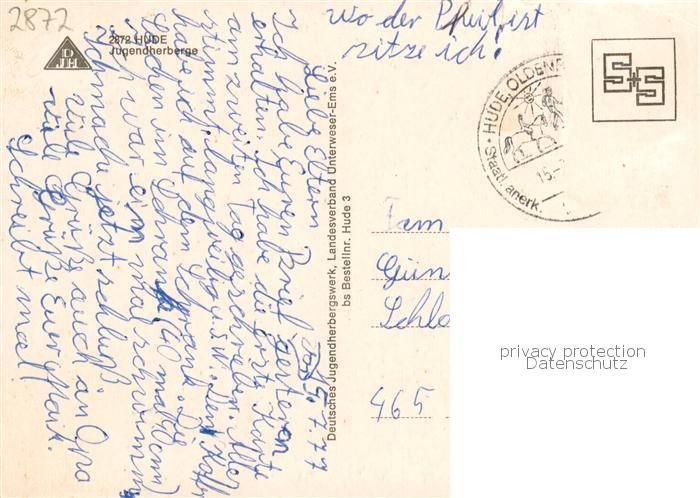 2872
2872 HUDE
Jugendherberge
DJH
Wo der Pfeil ist
sitze ich!
HUDE, OLDENB
Staatl. anerk.
15.
S+S
Deutsches Jugendherbergswerk, Landesverband Unterweser-Ems e.V.
bs Bestellnr. Hude 3
7.77
Liebe Eltern
Ich habe Euren Brief gestern
erhalten. Ich habe die erste Karte
am zweiten Tag geschrieben. Alles
stimmt, langweilig u.s.w. Den Koffer
habe ich auf dem Schrank. Die
Sachen im Schrank (10 mal 10 cm)
Ich war ein mal schwimmen
Ich mache jetzt schluß
viele Grüße auch an Opa
viele Grüße Euer
Schreibt mal!
Fam
Gün
Schlo
465
privacy protection
Datenschutz